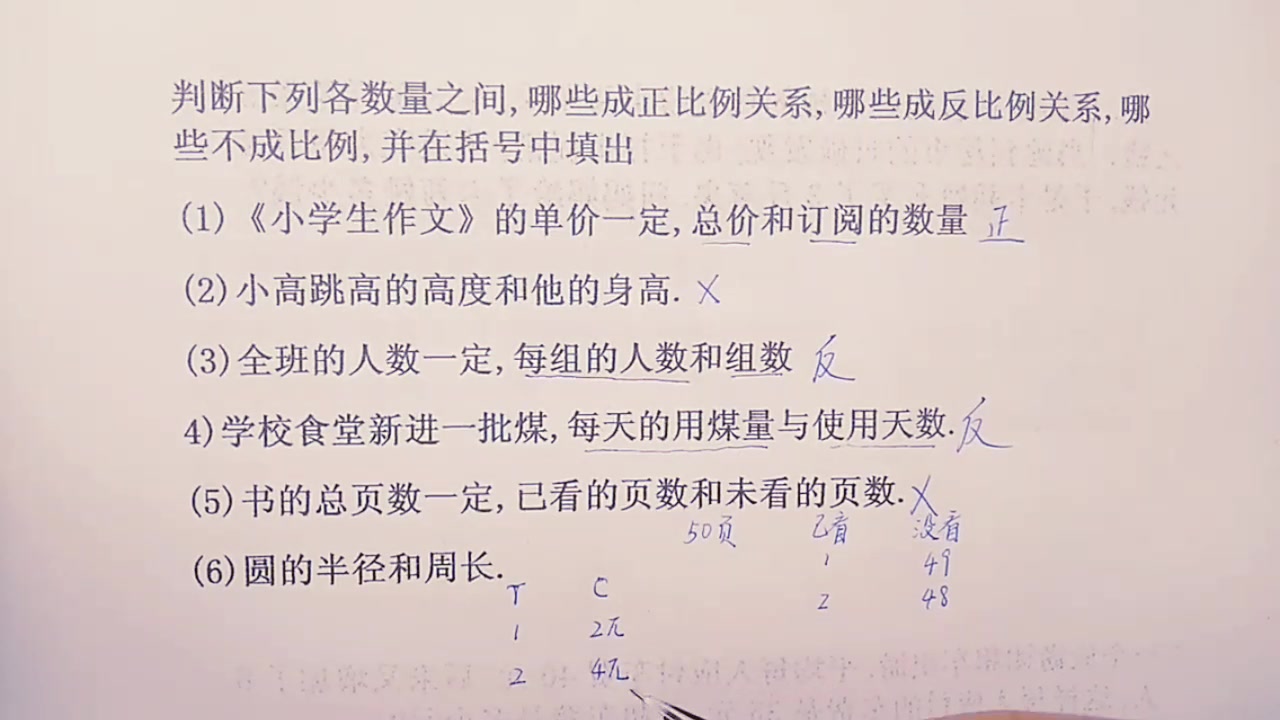 判断下列各数量之间,哪些成正比例关系,哪些成反比例关系,哪
些不成比例,并在括号中填出
(1)《小学生作文》的单价一定,总价和订阅的数量 正
(2)小高跳高的高度和他的身高. X
(3)全班的人数一定,每组的人数和组数 反
4)学校食堂新进一批煤,每天的用煤量与使用天数. 反
(5)书的总页数一定,已看的页数和未看的页数. X
50页 已看 没看
1 49
2 48
(6)圆的半径和周长.
r C
1 2π
2 4π